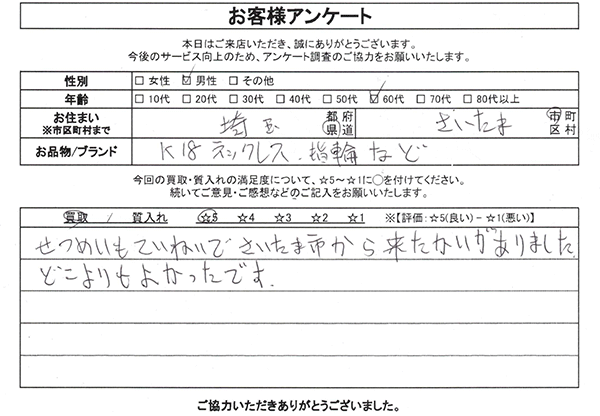 お客様アンケート
本日はご来店いただき、誠にありがとうございます。
今後のサービス向上のため、アンケート調査のご協力をお願いいたします。
性別 □女性 ☑男性 □その他
年齢 □10代 □20代 □30代 □40代 □50代 ☑60代 □70代 □80代以上
お住まい ※市区町村まで 埼玉 都府県道 さいたま 市町区村
お品物/ブランド K18 ネックレス、指輪など
今回の買取・質入れの満足度について、☆5~☆1に○を付けてください。
続いてご意見・ご感想などのご記入をお願いいたします。
買取 / 質入れ ☆5 ☆4 ☆3 ☆2 ☆1 ※【評価:☆5(良い)-☆1(悪い)】
せつめいもていねいで さいたま市から 来たかいがありました
どこよりもよかったです.
ご協力いただきありがとうございました。